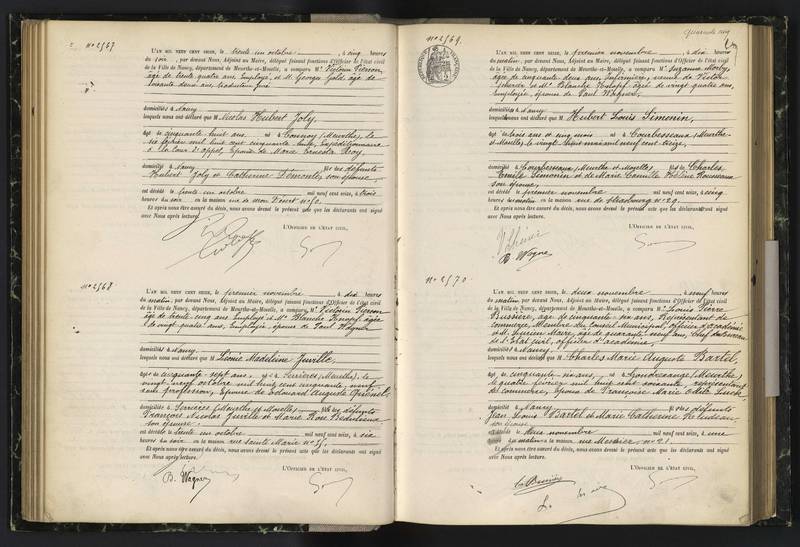 N° 2567
L'AN MIL NEUF CENT SEIZE, le trente un octobre, à cinq heures
du soir, par devant Nous, Adjoint au Maire, délégué faisant fonctions d'Officier de l'état civil
de la Ville de Nancy, département de Meurthe-et-Moselle, a comparu M. Victorin Pierson,
âgé de trente quatre ans, Employé, et M. Georges âgé de
soixante deux ans,
domiciliés à Nancy
lesquels nous ont déclaré que M. Nicolas Hubert Joly,
âgé de cinquante huit ans, né à (Meurthe), le
mil huit cent cinquante huit, Expéditionnaire
à la Cour d'Appel, Epoux de Marie Ernesta Roy
domicilié à Nancy fils des défunts
Hubert Joly et Catherine son épouse,
est décédé le trente un octobre mil neuf cent seize, à trois
heures du soir en la maison rue de mon Désert n° 50.
Et après nous être assuré du décès, nous avons dressé le présent acte que les déclarants ont signé
avec Nous après lecture.
L'OFFICIER DE L'ÉTAT CIVIL,
N° 2568
L'AN MIL NEUF CENT SEIZE, le premier novembre, à dix heures
du matin, par devant Nous, Adjoint au Maire, délégué faisant fonctions d'Officier de l'état civil
de la Ville de Nancy, département de Meurthe-et-Moselle, a comparu M. Victorin Pierson
âgé de trente cinq ans Employé et Me Blanche âgée
de vingt quatre ans, Employée, épouse de Paul Wagner
domiciliés à Nancy
lesquels nous ont déclaré que M Léonie Madeleine
âgée de cinquante sept ans, née à Serrières (Meurthe), le
vingt neuf octobre mil huit cent cinquante neuf
sans profession, Epouse de Edouard Auguste
domiciliée à Serrières (Meurthe et Moselle) fille des défunts
François Nicolas et Marie Rose
son épouse
est décédée le trente un octobre mil neuf cent seize, à six
heures du soir en la maison rue Sainte Marie n°
Et après nous être assuré du décès, nous avons dressé le présent acte que les déclarants ont signé
avec Nous après lecture.
L'OFFICIER DE L'ÉTAT CIVIL,
B. Wagner
N° 2569.
L'AN MIL NEUF CENT SEIZE, le premier novembre, à dix heures
du matin, par devant Nous, Adjoint au Maire, délégué faisant fonctions d'Officier de l'état civil
de la Ville de Nancy, département de Meurthe-et-Moselle, a comparu Me Suzanne
âgée de cinquante deux ans, Infirmière, veuve de Victor
et Me Blanche âgée de vingt quatre ans,
Employée, épouse de Paul Wagner,
domiciliées à Nancy
lesquelles nous ont déclaré que M Hubert Louis Simonin,
âgé de trois ans et cinq mois né à Courbesseaux (Meurthe-
et-Moselle), le vingt mil neuf cent treize,
domicilié à Courbesseaux (Meurthe et Moselle), fils de Charles
Emile Simonin et de Marie Camille Hélène Rousseau
son épouse,
est décédé le premier novembre mil neuf cent seize, à cinq
heures du matin en la maison rue de Strasbourg n° 29.
Et après nous être assuré du décès, nous avons dressé le présent acte que les déclarants ont signé
avec Nous après lecture.
L'OFFICIER DE L'ÉTAT CIVIL,
B. Wagner
N° 2570.
L'AN MIL NEUF CENT SEIZE, le deux novembre, à neuf heures
du matin, par devant Nous, Adjoint au Maire, délégué faisant fonctions d'Officier de l'état civil
de la Ville de Nancy, département de Meurthe-et-Moselle, a comparu M. Louis Pierre
Bussière, âgé de cinquante six ans, Représentant de
commerce, Membre du Conseil Municipal, Officier d'académie
et M. Lucien Maire, âgé de quarante neuf ans, Chef du Bureau
de l'Etat civil, officier d'académie,
domiciliés à Nancy
lesquels nous ont déclaré que M. Charles Marie Auguste Bartel,
âgé de cinquante six ans, né à Gondrexange (Meurthe),
le quatre février mil huit cent soixante, représentant
de commerce, Epoux de Françoise Marie
domicilié à Nancy fils des défunts
Jean Louis Bartel et Marie Catherine
son épouse
est décédé le deux novembre mil neuf cent seize, à une
heure du matin en la maison rue Mercier n° 21.
Et après nous être assuré du décès, nous avons dressé le présent acte que les déclarants ont signé
avec Nous après lecture.
L'OFFICIER DE L'ÉTAT CIVIL,